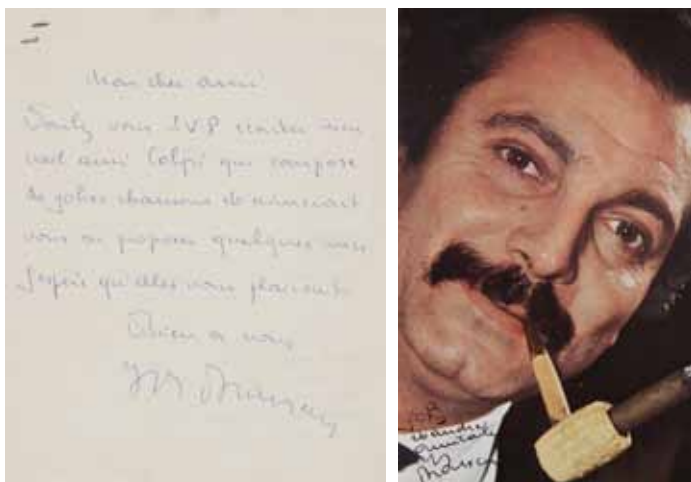 Mon cher ami
Voulez vous S.V.P écouter mon
vieil ami Colpi qui compose
de jolies chansons et aimerait
vous en proposer quelques unes
J'espère qu'elles vous plairont
Bien à vous